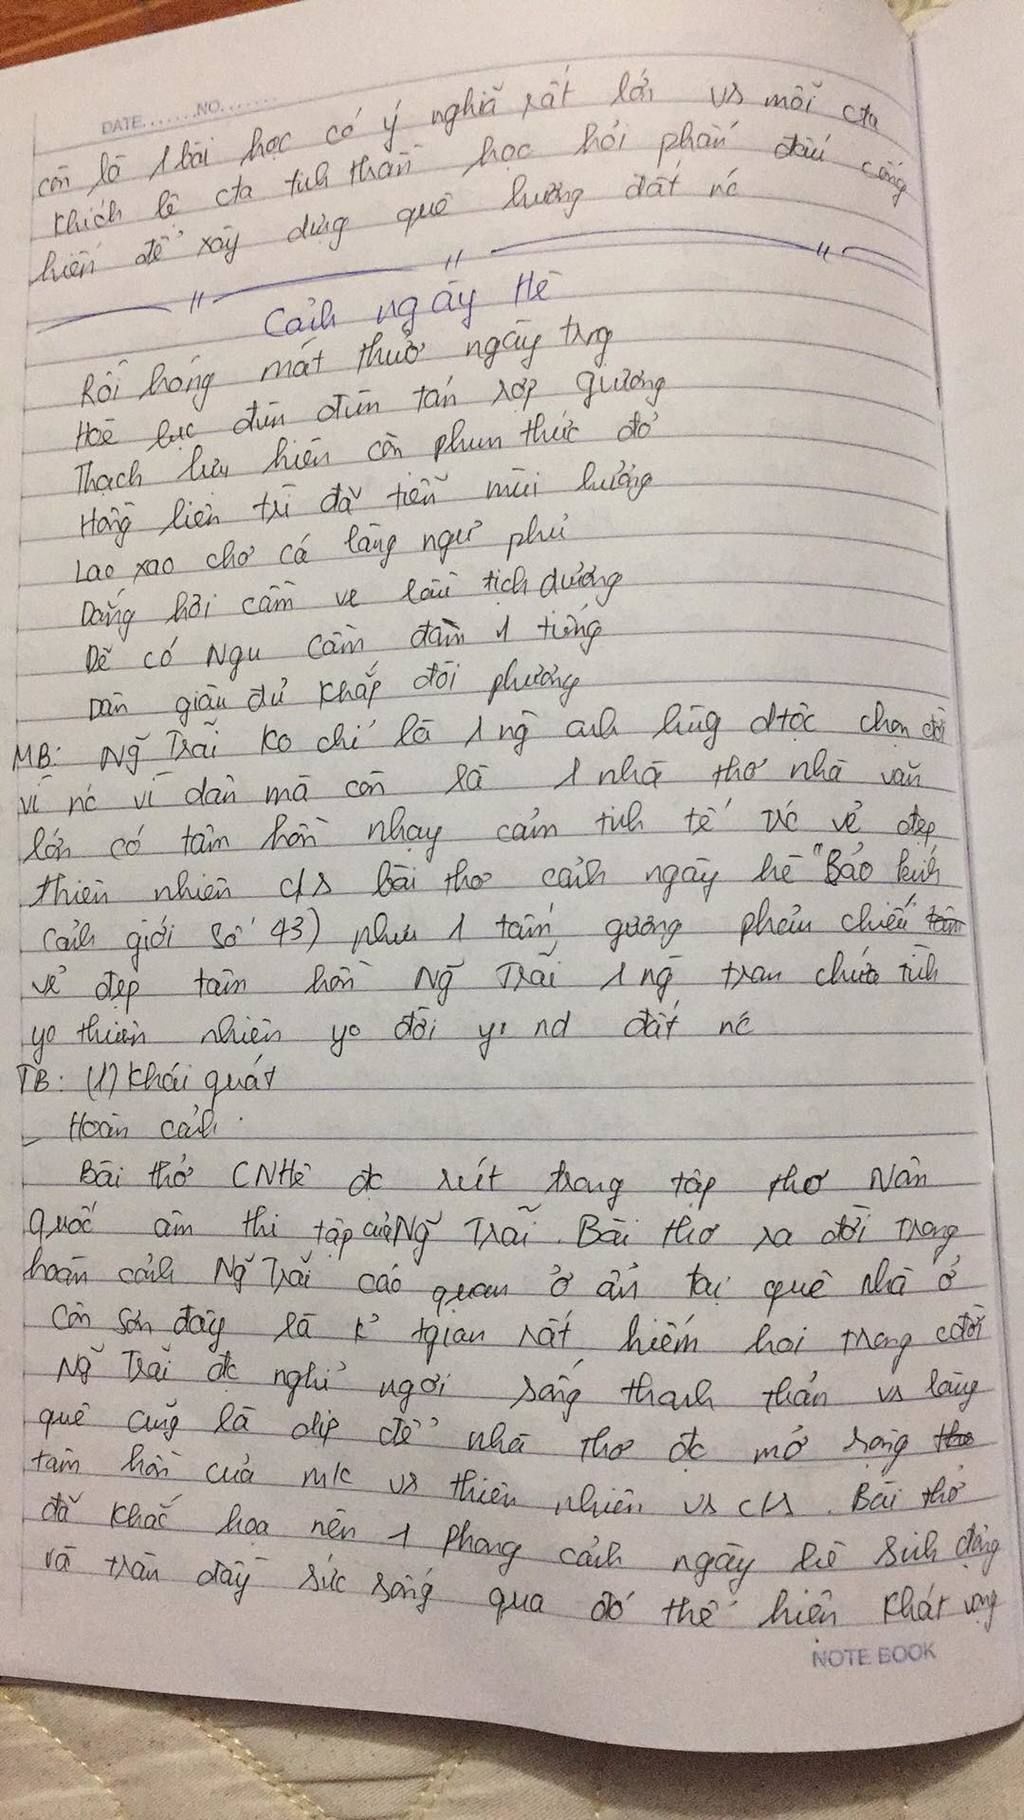 DATE.......NO.......
còn là 1 bài học có ý nghĩa rất lớn vs mỗi cta
khích lệ cta tinh thần học hỏi phấn đấu cống
hiến để xây dựng quê hương đất nc
Cảnh ngày Hè
Rồi hóng mát thuở ngày trg
Hoè lục đùn đùn tán rợp giương
Thạch lựu hiên còn phun thức đỏ
Hồng liên trì đã tiễn mùi hương
Lao xao chợ cá làng ngư phủ
Dắng hỏi cầm ve lầu tịch dương
Dẽ có Ngu cầm đàn 1 tiếng
Dân giàu đủ khắp đòi phương
MB: Ng̃ Trãi ko chỉ là 1 ng̀ anh hùng dtộc chọn đời
vì nc vì dân mà còn là 1 nhà thơ nhà văn
lớn có tâm hồn nhạy cảm tinh tế trc vẻ đẹp
thiên nhiên c/s bài thơ cảnh ngày hè "Bảo kính
cảnh giới số 43) như 1 tấm gương phản chiếu
vẻ đẹp tâm hồn Ng̃ Trãi 1 ng̃ tran chứa tình
yo thiên nhiên yo đời yo nd đất nc
TB: (1) Khái quát
- Hoàn cảnh.
Bài thơ CNHè đc rút trong tập thơ Nôm
quốc âm thi tập của Ng̃ Trãi. Bài thơ ra đời trong
hoàn cảnh Ng̃ Trãi cáo quan ở ẩn tại quê nhà ở
Côn Sơn đây là k tgian rất hiếm hoi trong cđời
Ng̃ Trãi đc nghỉ ngơi sống thanh thản vs làng
quê cũg là dịp để nhà thơ đc mở rộng
tâm hồn của mk vs thiên nhiên vs c/s. Bài thơ
đã khắc họa nên 1 phong cảnh ngày hè sinh động
và tràn đầy sức sống qua đó thể hiện khát vọng
NOTE BOOK